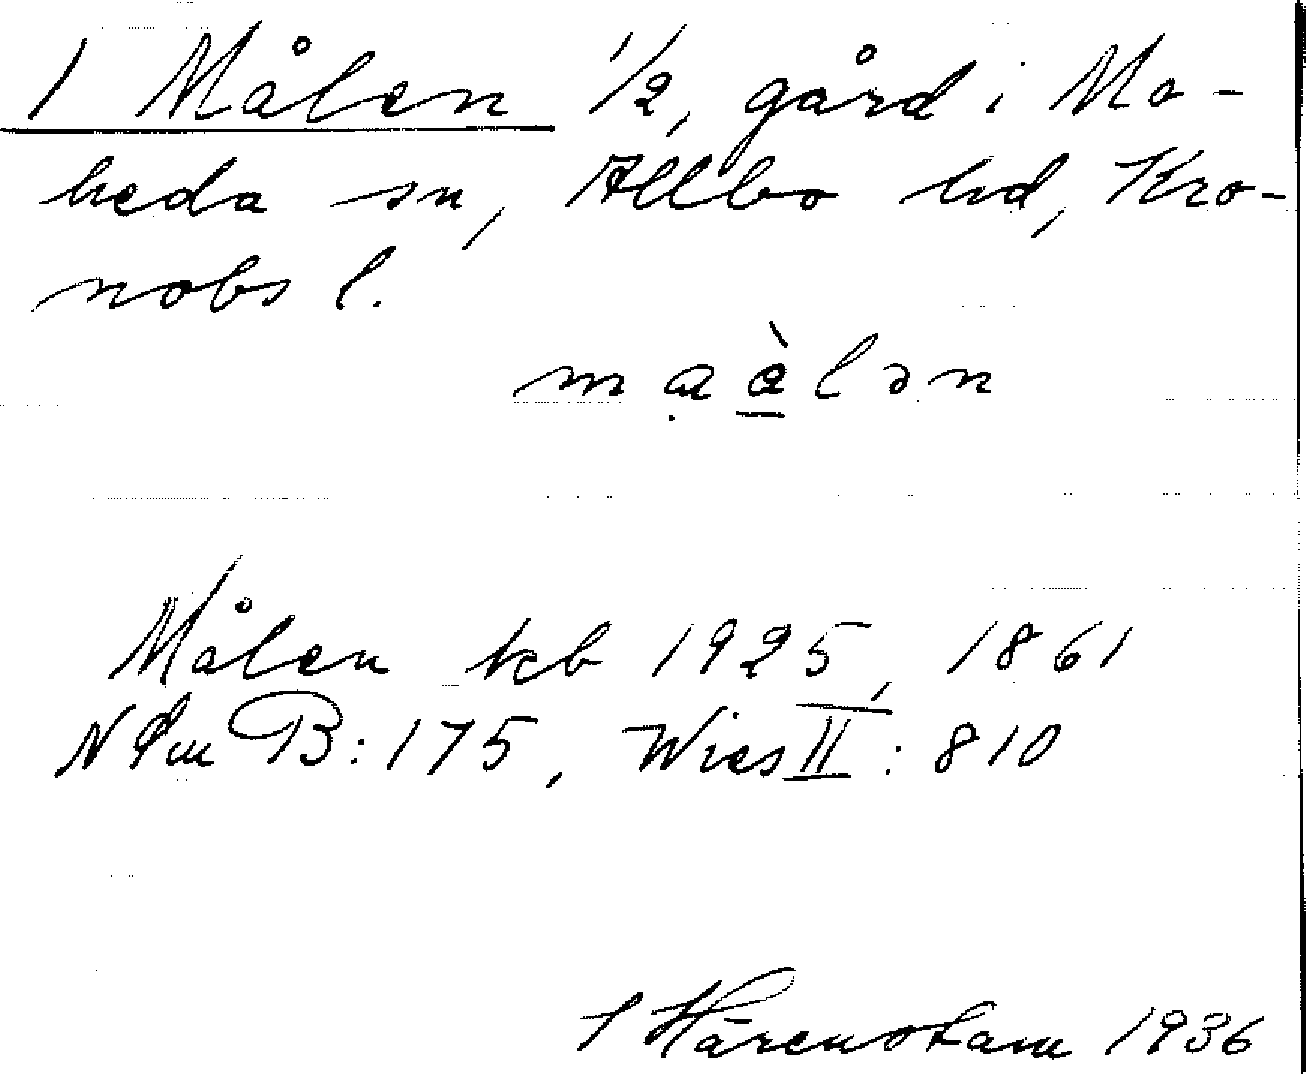 1 Målen 1/2, gård i Mo-
heda sn, Allbo hd, Kro-
nobs l.
maàlən
Målen kcb 1925, 1861
Wies II: 810
Härenstam 1936